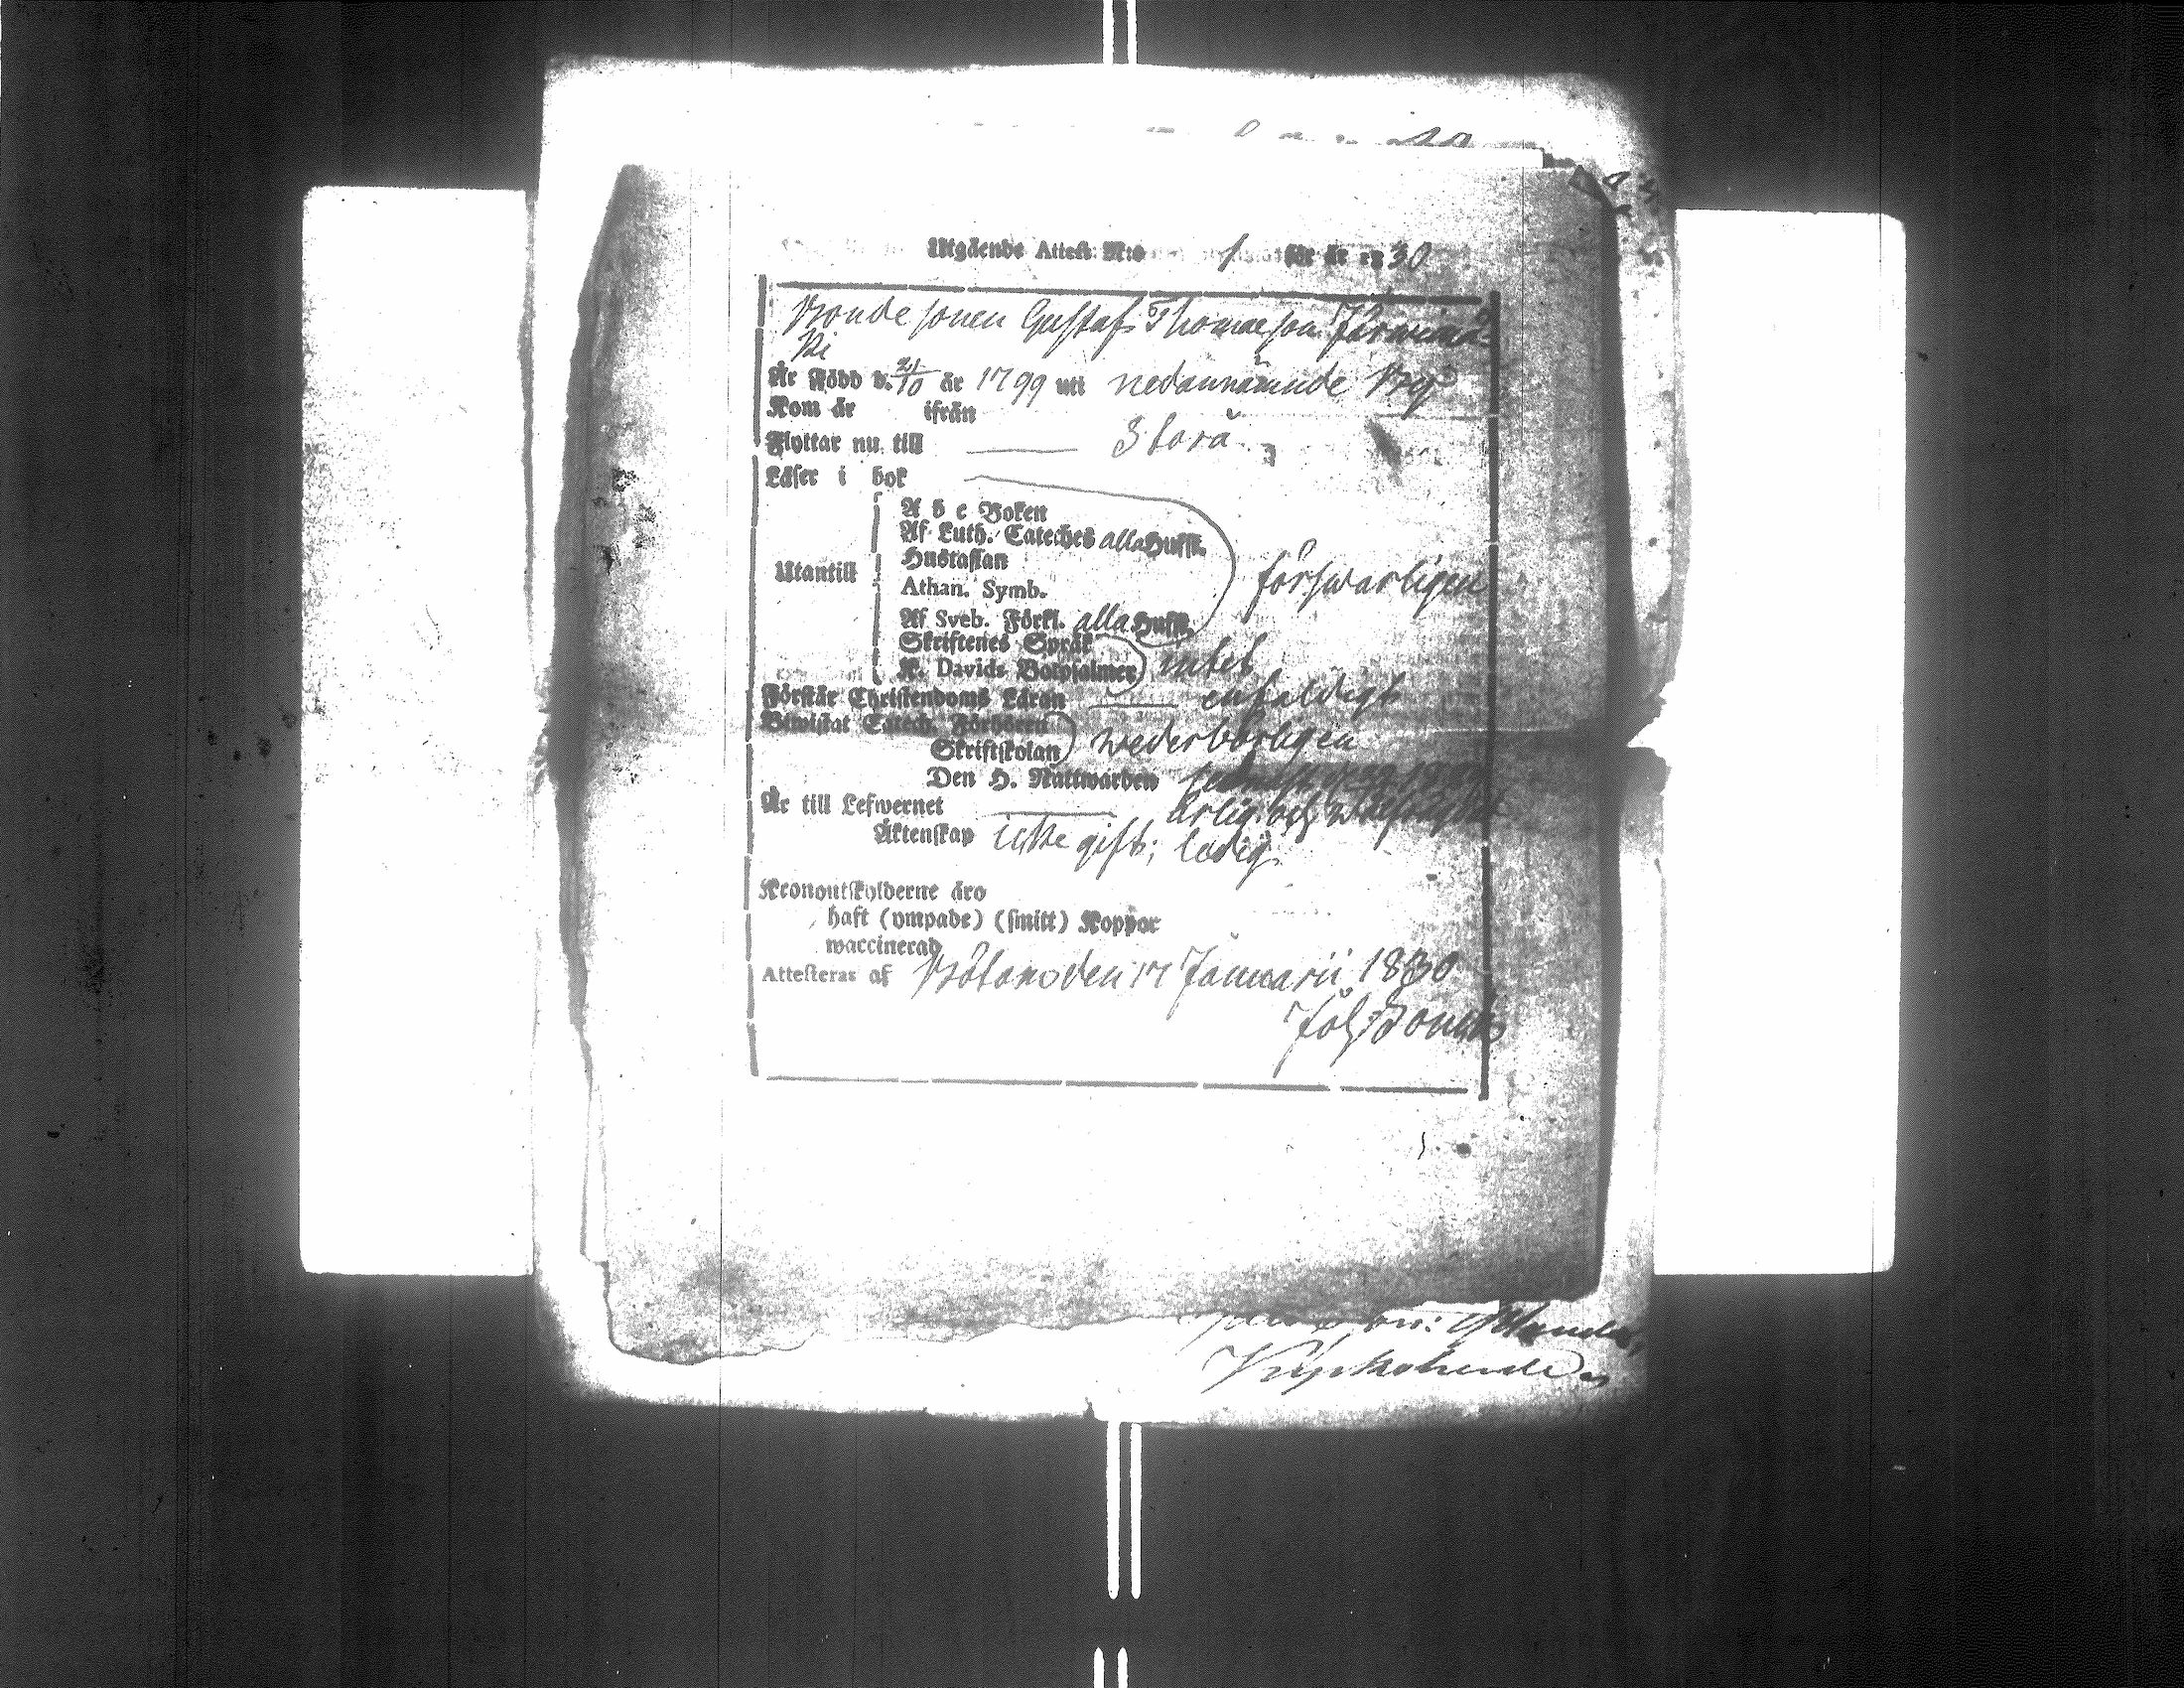 Utgående Attest. N:o 1 för år 1830
Bondesonen Gustaf Thomasson Järvimä-
ki
Är född d. 21/10 år 1799 uti nedannämnde By
Kom år ifrån
Flyttar nu till Storå
Läser i bok
A b c Boken
Af Luth. Cateches alla Hufst.
Hustaflan
Utantill
Athan. Symb.
förswarligen
Af Sveb. Förkl. alla Hufst.
Skriftenes Språk
K. Davids Botpsalmer intet
Förstår Christendoms Läran enfaldigt
Biwistat Catech. Förhören
Skriftskolan wederbörligen
Den H. Nattwarden
Är till Lefwernet ärlig och
Äktenskap icke gift; ledig.
Kronoutskylderne äro
haft (ympade) (smitt) Koppor
waccinerad
Attesteras af Bötom den 17 Januarii 1830
Joh